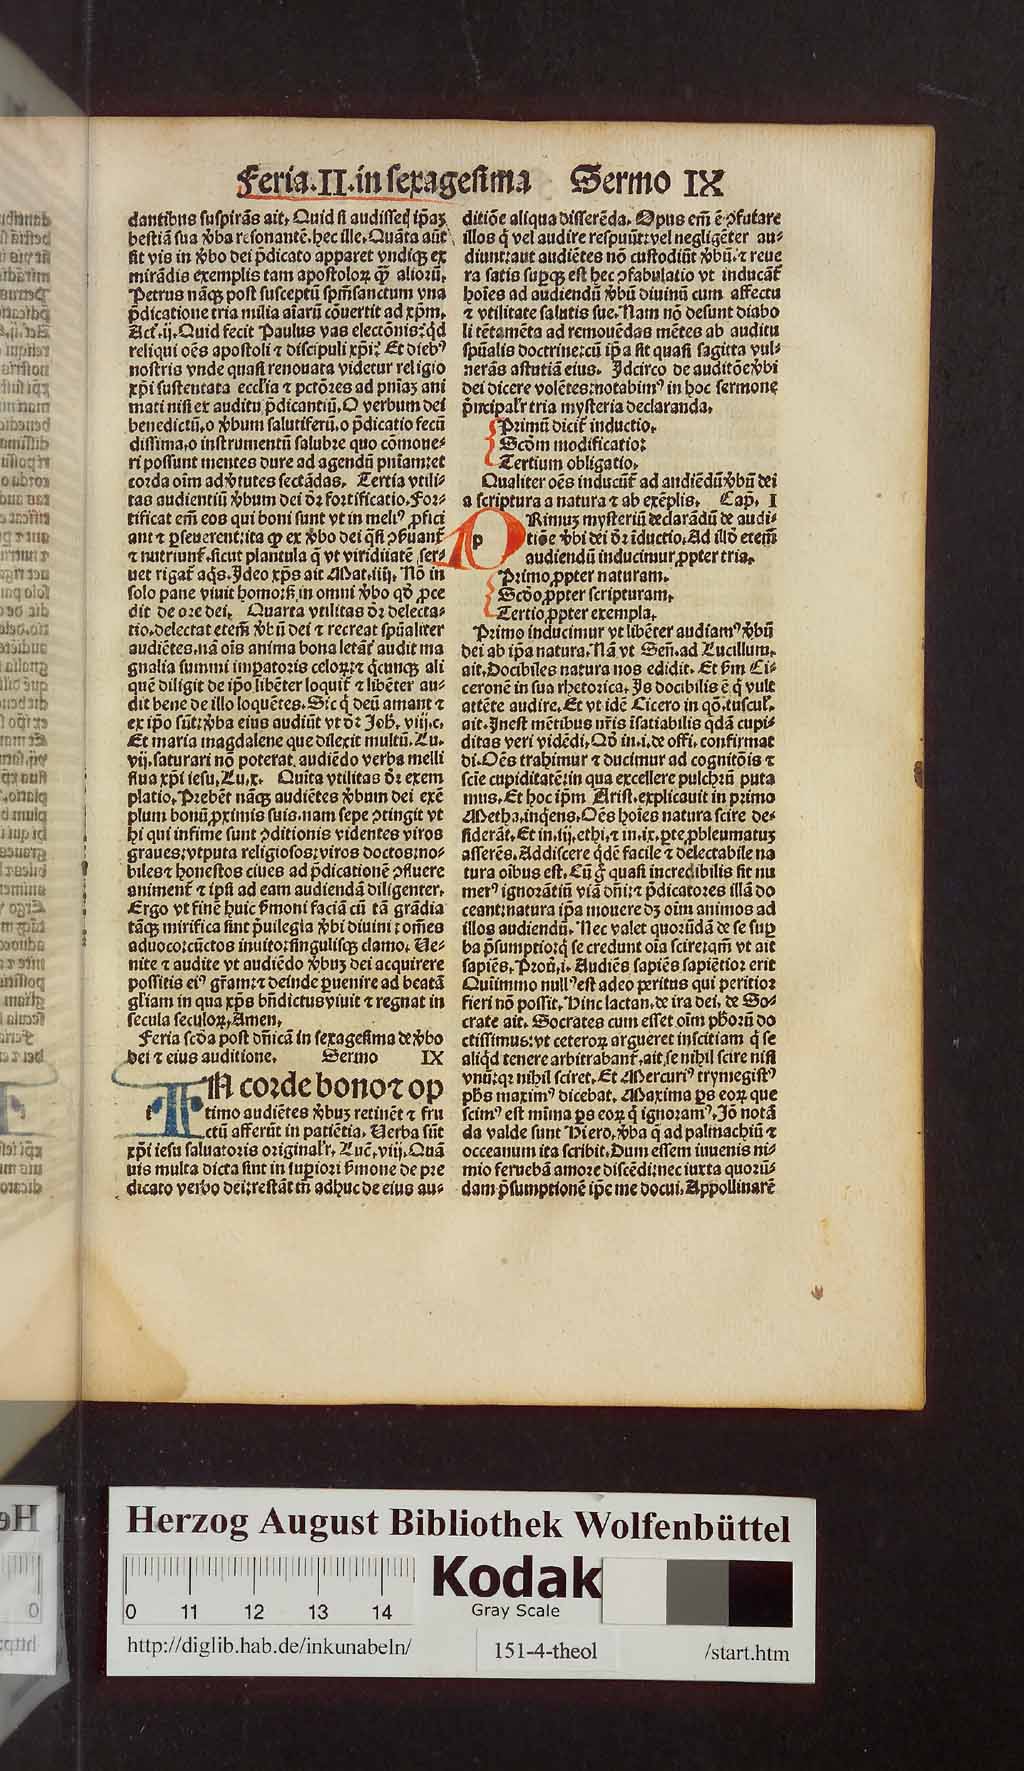 Feria.II.in sexagesima Sermo IX
dantibus suspirās ait, Quid si audisset ip̄aꝫ
bestiā sua ꝟba resonantē. hec ille, Quāta aūt
sit vis in ꝟbo dei p̄dicato apparet vndiqꝫ ex
mirādis exemplis tam apostoloꝝ qꝫ̄ alioꝝ,
Petrus nāqꝫ post susceptū sp̄msanctum vna
p̄dicatione tria milia aīarū cōuertit ad xp̄m,
Act̄.ij. Quid fecit Paulus vas electōnis: qd̄
reliqui oēs apostoli ⁊ discipuli xp̄i? Et diebꝰ
nostris vnde quasi renouata videtur religio
xp̄i sustentata eccl̄ia ⁊ pctōres ad pn̄iaꝫ ani
mati nisi ex auditu p̄dicantiū, O verbum dei
benedictū, o ꝟbum salutiferū, o p̄dicatio fecū
dissima, o instrumentū salubre quo cōmone⸗
ri possunt mentes dure ad agendū pn̄iam: et
corda oīm ad ꝟtutes sectādas. Tertia vtili⸗
tas audientiū ꝟbum dei dr̄ fortificatio. For⸗
tificat em̄ eos qui boni sunt vt in meliꝰ ꝓfici
ant ⁊ ꝑseuerent: ita ꝙ ex ꝟbo dei q̄si ꝯẜuant̄
⁊ nutriunt̄. sicut plantula q̄ vt viridiatē ser⸗
uet rigat̄ aq̄s. Ideo xp̄s ait Mat. iiij, Nō in
solo pane viuit homo: ẜ in omni ꝟbo qd̄ ꝓce
dit de ore dei, Quarta vtilitas dr̄ delecta⸗
tio. delectat etem̄ ꝟbū dei ⁊ recreat spūaliter
audiētes. nā oīs anima bona letat̄ audit ma
gnalia summi imꝑatoris celoꝝ: ⁊ q̄cunqꝫ ali
quē diligit de ip̄o libēter loquit̄ ⁊ libēter au⸗
dit bene de illo loquētes. Sic q̄ deū amant ⁊
ex ip̄o sūt: ꝟba eius audiūt vt dr̄ Joh̄. viij. c,
Et maria magdalene que dilexit multū. Lu.
vij. saturari nō poterat audiēdo verba melli
flua xp̄i iesu, Lu. x. Quīta vtilitas dr̄ exem
platio, Prebēt nāqꝫ audiētes ꝟbum dei exē
plum bonū ꝓximis suis. nam sepe ꝯtingit vt
hi qui infime sunt ꝯditionis videntes viros
graues: vtputa religiosos: viros doctos: no⸗
biles ⁊ honestos ciues ad p̄dicationē ꝯfluere
animent̄ ⁊ ip̄si ad eam audiendā diligenter.
Ergo vt finē huic ẜmoni faciā cū tā grādia
tāqꝫ mirifica sint p̄uilegia ꝟbi diuini: omēs
aduoco: cūctos inuito: singulisqꝫ clamo, Ue⸗
nite ⁊ audite vt audiēdo ꝟbuꝫ dei acquirere
possitis eiꝰ gr̄am: ⁊ deinde ꝑuenire ad beatā
gl̄iam in qua xp̄s bn̄dictus viuit ⁊ regnat in
secula seculoꝝ, Amen,
Feria scd̄a post dn̄icā in sexagesima de ꝟbo
dei ⁊ eius auditione, Sermo IX
IN corde bono ⁊ op
timo audiētes ꝟbuꝫ retinēt ⁊ fru
ctū afferūt in patiētia, Uerba sūt
xp̄i iesu saluatoris originalr̄, Luc̄, viij. Quā
uis multa dicta sint in suꝑiori ẜmone de pre
dicato verbo dei: restāt tn̄ adhuc de eius au⸗
ditiōe aliqua disserēda. Opus em̄ ē ꝯfutare
illos q̄ vel audire respuūt: vel negligēter au⸗
diunt: aut audiētes nō custodiūt ꝟbū. ⁊ reue
ra satis suꝑqꝫ est hec ꝯfabulatio vt inducāt̄
hoīes ad audiendū ꝟbū diuinū cum affectu
⁊ vtilitate salutis sue. Nam nō desunt diabo
li tētamēta ad remouēdas mētes ab auditu
spūalis doctrine: cū ip̄a sit quasi sagitta vul⸗
nerās astutiā eius. Idcirco de auditōe ꝟbi
dei dicere volētes: notabimꝰ in hoc sermone
p̄ncipalr̄ tria mysteria declaranda,
Primū dicit̄ inductio,
Scd̄m modificatio:
Tertium obligatio,
Qualiter oēs inducūt̄ ad audiēdū ꝟbū dei
a scriptura a natura ⁊ ab exēplis, Cap, I
PRimuꝫ mysteriū declarādū de audi⸗
tiōe ꝟbi dei dr̄ īductio, Ad illd̄ etem̄
audiendū inducimur ꝓpter tria,
Primo ꝓpter naturam,
Scd̄o ꝓpter scripturam,
Tertio ꝓpter exempla,
Primo inducimur vt libēter audiamꝰ ꝟbū
dei ab ip̄a natura. Nā vt Sen̄. ad Lucillum,
ait, Docibiles natura nos edidit. Et ẜm Ci⸗
ceronē in sua rhetorica, Is docibilis ē q̄ vult
attēte audire, Et vt idē Cicero in qō. tuscul̄.
ait. Inest mētibus nr̄is īsatiabilis q̄dā cupi⸗
ditas veri vidēdi, Qd̄ in. i. de offi. confirmat
di. Oēs trahimur ⁊ ducimur ad cognitōis ⁊
scīe cupiditatē: in qua excellere pulchrū puta
mus. Et hoc ip̄m Arist. explicauit in primo
Metha, inq̄ens, Oēs hoīes natura scire de⸗
siderāt, Et in. iij, ethi, ⁊ in. ix. ꝑte ꝓbleumatuꝫ
asserēs. Addiscere q̄dē facile ⁊ delectabile na
tura oībus est. Cū g̊ quasi incredibilis sit nu
merꝰ ignorātiū viā dn̄i: ⁊ p̄dicatores illā do
ceant: natura ip̄a mouere dꝫ oīm animos ad
illos audiendū. Nec valet quorūdā de se suꝑ
ba p̄sumptio: q̄ se credunt oīa scire: qm̄ vt ait
sapiēs, Prou̅, i. Audiēs sapiēs sapiētior erit
Quīimmo nullꝰ est adeo ꝑitus qui peritior
fieri nō possit, Hinc lactan. de ira dei, de So⸗
crate ait. Socrates cum esset oīm ph̄oꝝ do
ctissimus: vt ceteroꝝ argueret inscitiam q̄ se
aliqd̄ tenere arbitrabant̄. ait. se nihil scire nisi
vnū: qꝛ nihil sciret. Et Mercuriꝰ trymegistꝰ
ph̄s maximꝰ dicebat. Maxima ꝑs eoꝝ que
scimꝰ est mīma ꝑs eoꝝ q̄ ignoramꝰ, Jō notā
da valde sunt Hiero, ꝟba q̄ ad palmachiū ⁊
occeanum ita scribit. Dum essem iuuenis ni⸗
mio ferebā amore discēdi: nec iuxta quorū⸗
dam p̄sumptionē ip̄e me docui. Appollinarē
Herzog August Bibliothek Wolfenbüttel
Kodak
Gray Scale
0 11 12 13 14
http://diglib.hab.de/inkunabeln/ 151-4-theol /start.htm